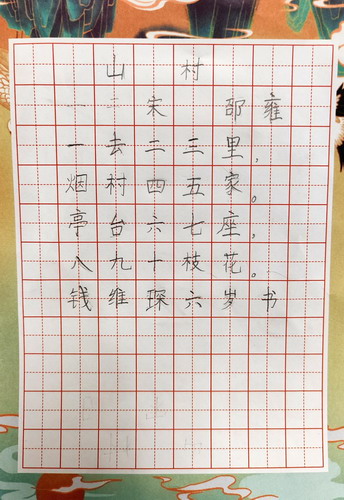 山村
宋 邵雍
一去二三里，
烟村四五家。
亭台六七座，
八九十枝花。
钱维琛六岁书